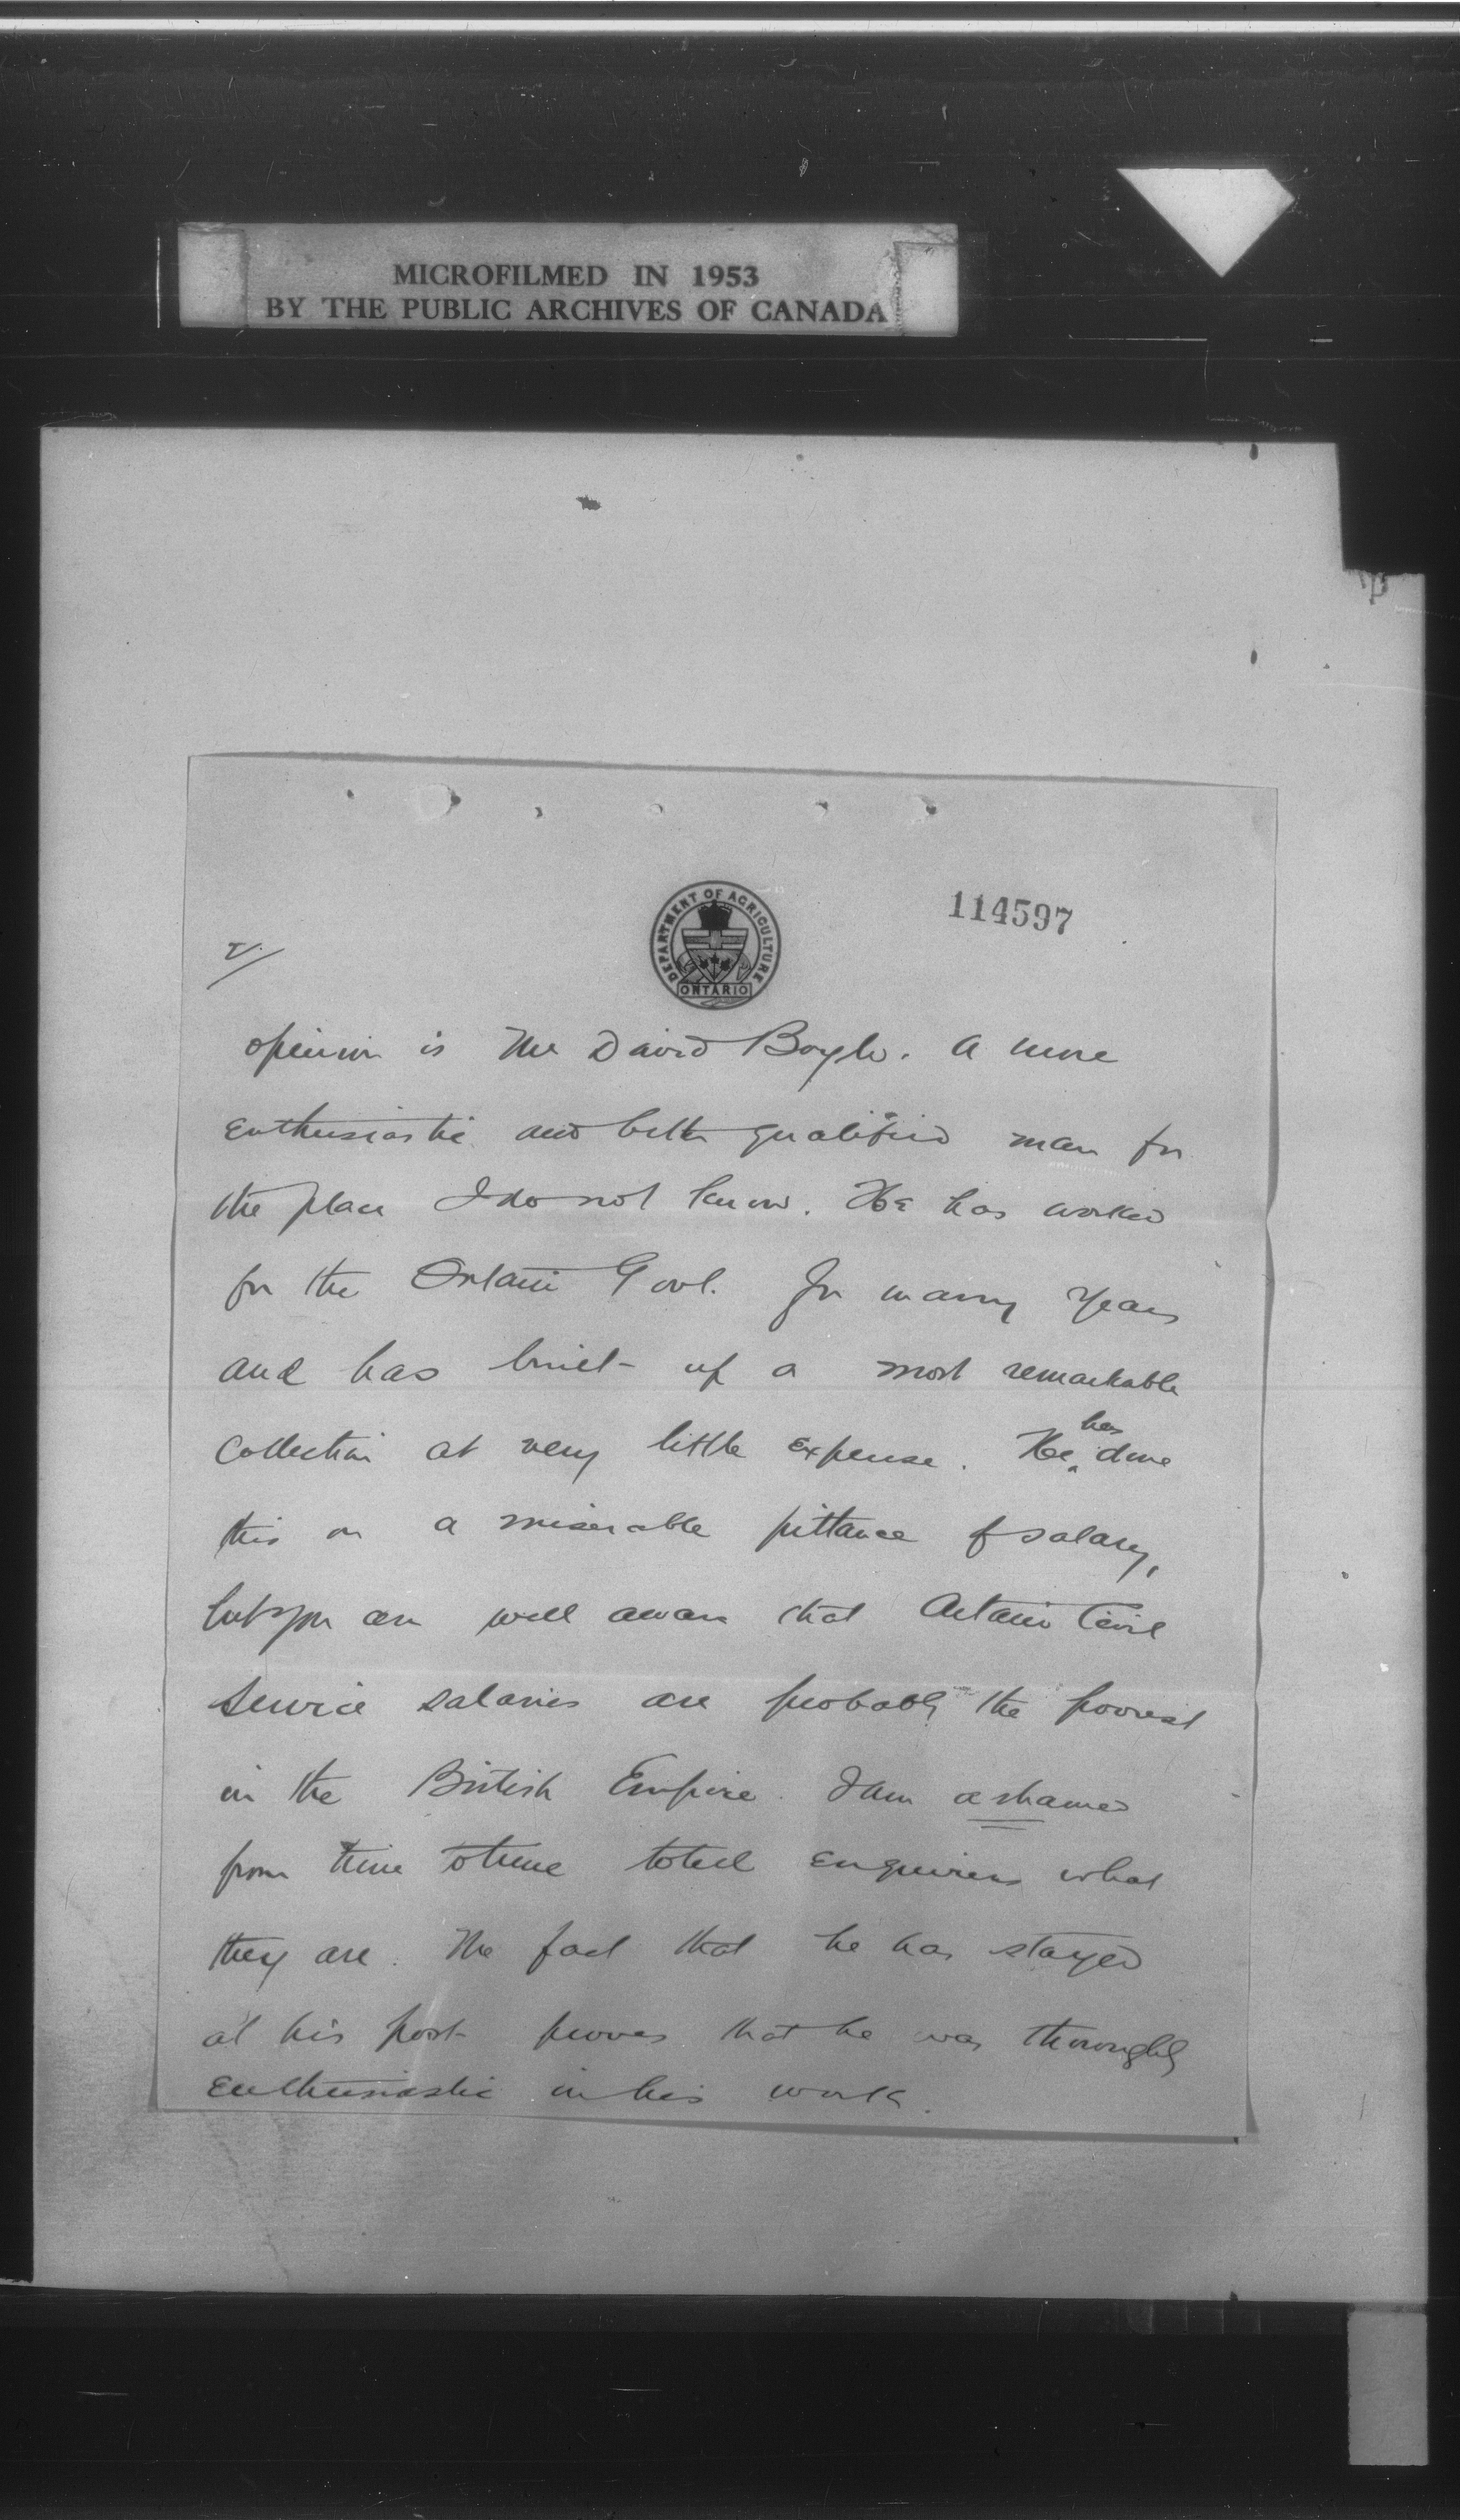 MICROFILMED IN 1953
BY THE PUBLIC ARCHIVES OF CANADA
DEPARTMENT OF AGRICULTURE
ONTARIO
114597
2/
opinion is Mr David Boyle. A more
enthusiastic and better qualified man for
the place I do not know. He has worked
for the Ontario Govt. for many years
and has built up a most remarkable
collection at very little expense. He has done
this on a miserable pittance of salary,
but you are well aware that Ontario Civil
Service salaries are probably the poorest
in the British Empire. I am ashamed
from time to time to tell enquirers what
they are. The fact that he has stayed
at his post proves that he was thoroughly
enthusiastic in his work.